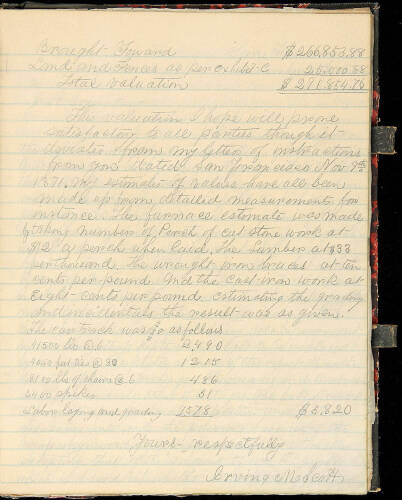 Brought Foward $266,853.88
Land and Fences as per exhibit C 25,000.88
Total valuation $291,854.76
This valuation I hope will prove
satisfactory to all parties though it
deviates from my letter of instructions
from you dated San Francisco Nov 9th
1871. My estimates of values have all been
made up from detailed measurements for
instance. The furnace estimate was made
by taking number of Perch of cut stone work at
$12 a perch when laid. The Lumber at $33
per thousand the wrought iron braces at ten
cents per pound. And the cast iron work at
Eight cents per pound estimating the grading
and incidentals the result was as given.
The car track was as follows
41500 lbs @ 6 2,490
4050 ties @ 30 1215
8100 lbs of chairs @ 6 486
5400 spikes 51
Labor laying and grading 1578 $5,820
Yours respectfully
Irving M.